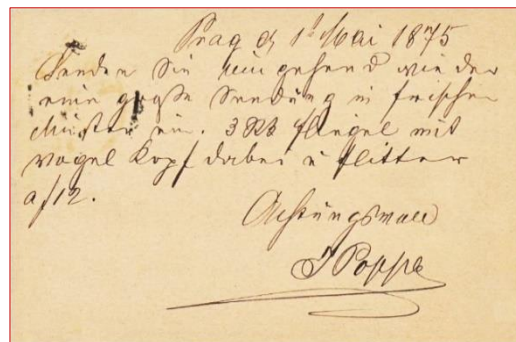 Prag d 1t Mai 1875
Senden Sie umgehend wieder
eine große Sendung in frischen
Muster ein. 3 Flügel mit
Vogel Kopf dabei u Flitter
a/12.
Achtungsvoll
J Poppe